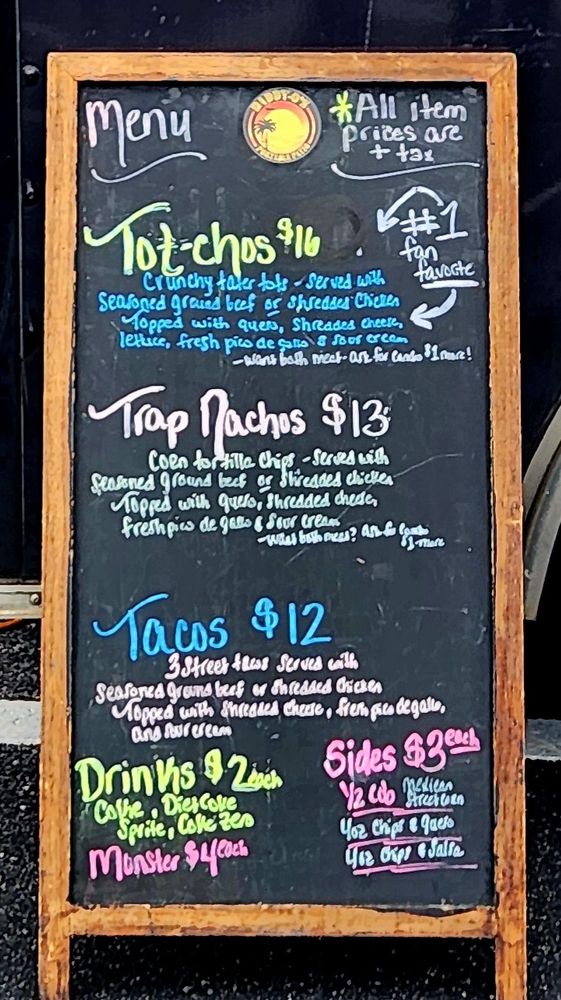 Menu
*All item
prices are
+ tax
Tot-chos $16
#1
fan
favorite
Crunchy tater tots - Served with
Seasoned ground beef or Shredded Chicken
Topped with queso, Shredded cheese,
lettuce, fresh pico de gallo & sour cream
- want both meat - ask for combo $1 more!
Trap Nachos $13
Corn tortilla chips - Served with
Seasoned ground beef or shredded chicken
Topped with queso, shredded cheese,
fresh pico de gallo & sour cream
- want both meat? Ask for combo
$1 more
Tacos $12
3 Street tacos served with
Seasoned ground beef or shredded Chicken
Topped with shredded cheese, fresh pico de gallo,
and sour cream
Drinks $2 each
Coke, Diet coke
Sprite, Coke Zero
Monster $4 each
Sides $3 each
1/2 Cob Mexican
Street corn
4oz Chips & Queso
4oz Chips & Salsa